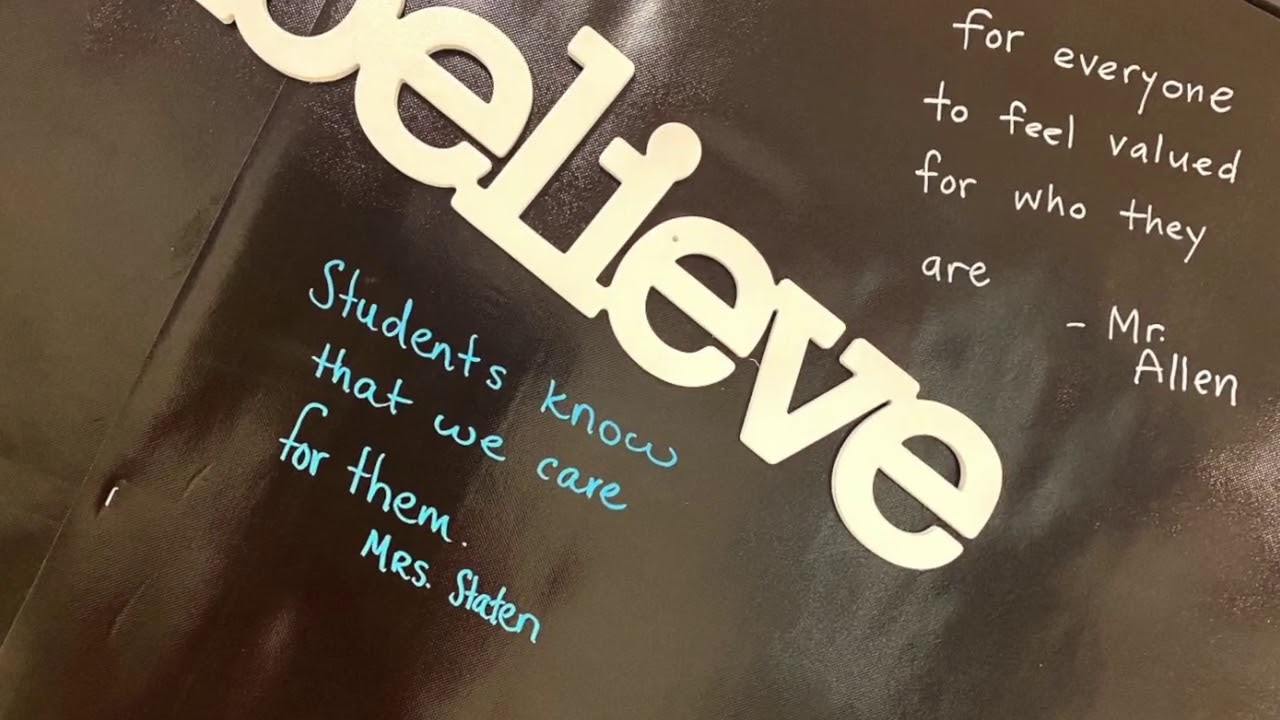 believe
for everyone
to feel valued
for who they
are
- Mr.
Allen
Students know
that we care
for them.
Mrs. Staten